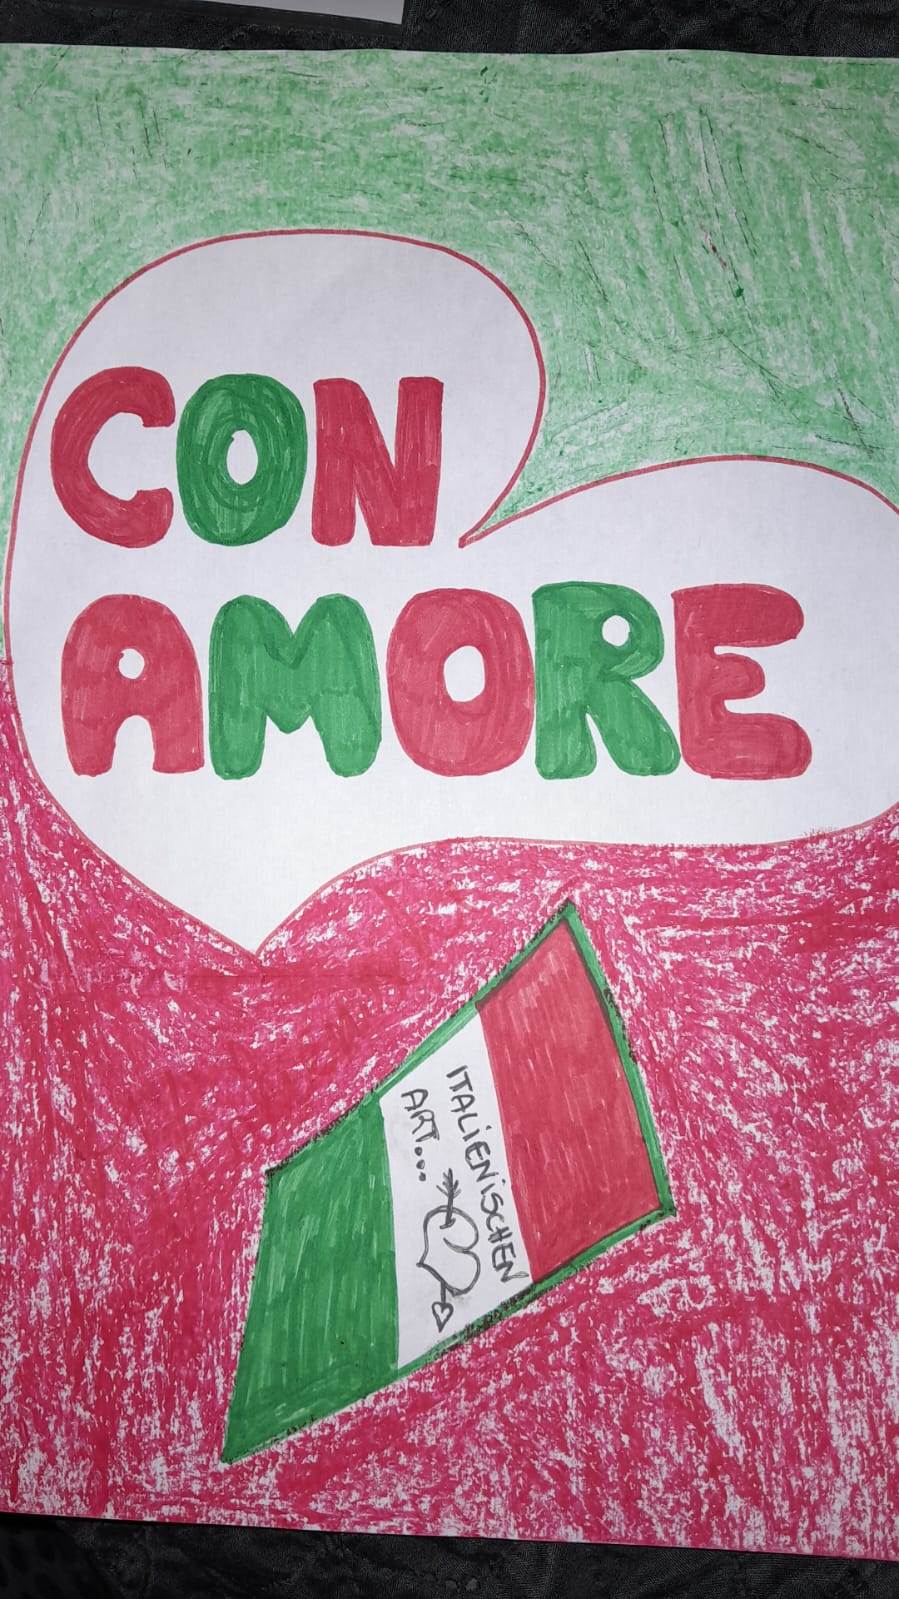 CON
AMORE
ITALIENISCHEN
ART...